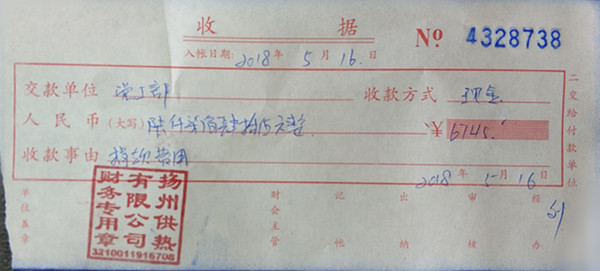 收 据 No 4328738
入帐日期: 2018 年 5 月 16 日
交款单位 党工部 收款方式 现金
人民币(大写) 陆仟柒佰肆拾伍元整 ¥ 6745
收款事由 捐款费用
2018 年 5 月 16 日
二交给付款单位
扬州供热
有限公司
财务专用章
3210011916708
单位盖章 财会主管 记帐 出纳 审核 经办